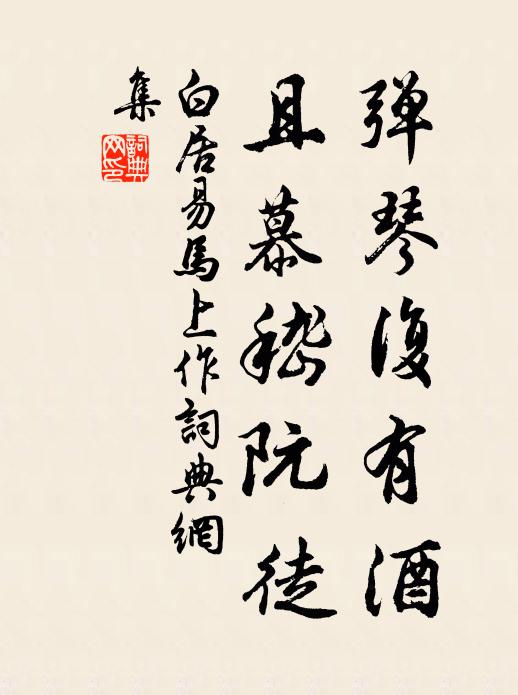 彈琴復有酒
且慕嵇阮徒
白居易馬上作詞典網
集
詞典
网印